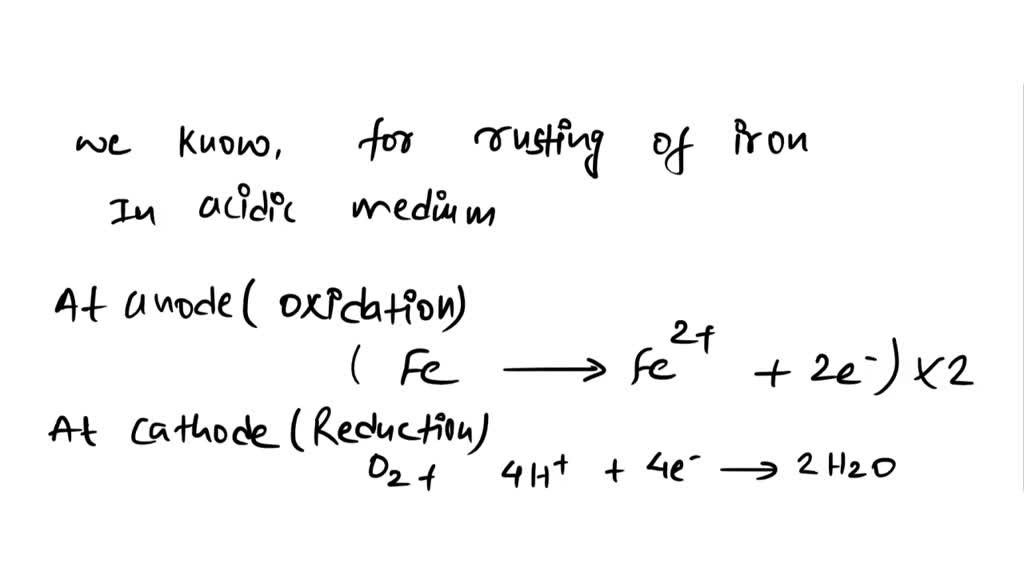 we know, for rusting of iron
In acidic medium
At anode ( oxidation)
( Fe ⟶ Fe²⁺ + 2e⁻ ) x2
At cathode ( Reduction)
O₂ + 4H⁺ + 4e⁻ ⟶ 2H₂O